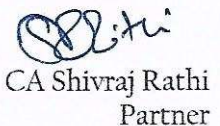 CA Shivraj Rathi
Partner